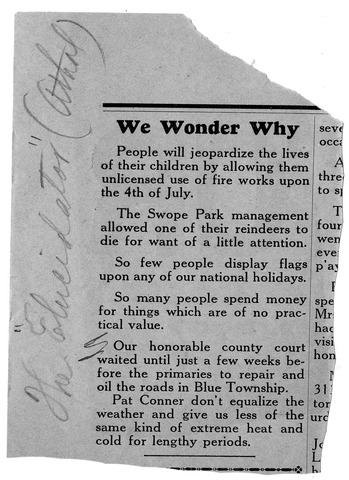 "The Elucidator" (Athol)
We Wonder Why
People will jeopardize the lives
of their children by allowing them
unlicensed use of fire works upon
the 4th of July.
The Swope Park management
allowed one of their reindeers to
die for want of a little attention.
So few people display flags
upon any of our national holidays.
So many people spend money
for things which are of no prac-
tical value.
Our honorable county court
waited until just a few weeks be-
fore the primaries to repair and
oil the roads in Blue Township.
Pat Conner don't equalize the
weather and give us less of the
same kind of extreme heat and
cold for lengthy periods.
seve
occa
A
three
to sp
T
four
wen
even
p'ay
spe
Mr
had
visi
hon
31
tor
urd
Jo
L
ha